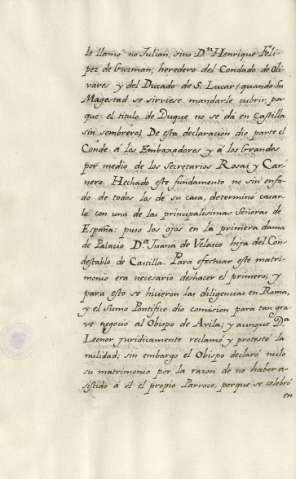 le llamó no Julian, sino Dⁿ Henrique Feli-
pez de Guzman, heredero del Condado de Oli-
váres y del Ducado de S. Lucar (quando Su
Magestad se sirviese mandarle cubrir, por
que el titulo de Duque no se da en Castilla
sin sombrero). De esta declaracion dio parte el
Conde á los Embaxadores y á los Grandes
por medio de los Secretarios Rosas y Car-
nero. Hechado este fundamento no sin enfa-
do de todos los de su casa, determino casar-
le con una de las principalesimas Señoras de
España: puso los ojos en la primera dama
de Palacio Dª Juana de Velasco hija del Con-
destable de Castilla. Para efectuar este matri-
monio era necesario deshacer el primero, y
para esto se hicieron las diligencias en Roma,
y el Sumo Pontifice dio comision para tan gra-
ve negocio al Obispo de Avila; y aunque Dª
Leonor juridicamente reclamó y protestó la
nulidad; sin embargo el Obispo declaró nulo
su matrimonio por la razon de no haber a-
sistido á él el propio Parroco, porque se celebró
en